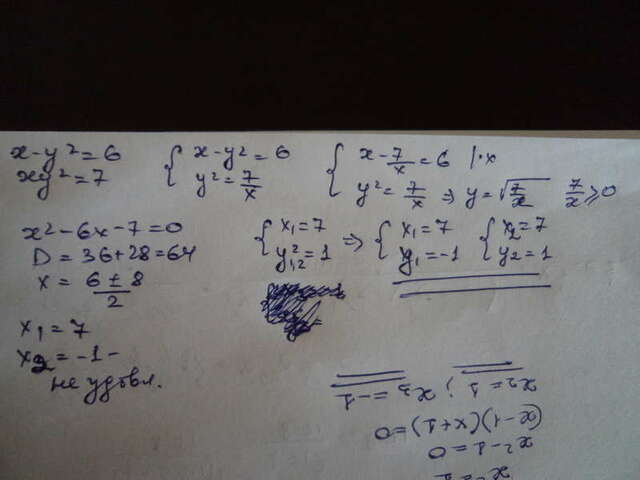 x-y²=6
xy²=7
{ x-y²=6
y²=7/x
{ x-7/x=6 |·x
y²=7/x ⇒ y=√(7/x) 7/x⩾0
x²-6x-7=0
D=36+28=64
x=(6±8)/2
x₁=7
x₂=-1-
не удовл.
{ x₁=7
y²₁,₂=1
⇒ { x₁=7
y₁=-1
{ x₂=7
y₂=1
x²-1=0
(x-1)(x+1)=0
x₂=1; x₃=-1